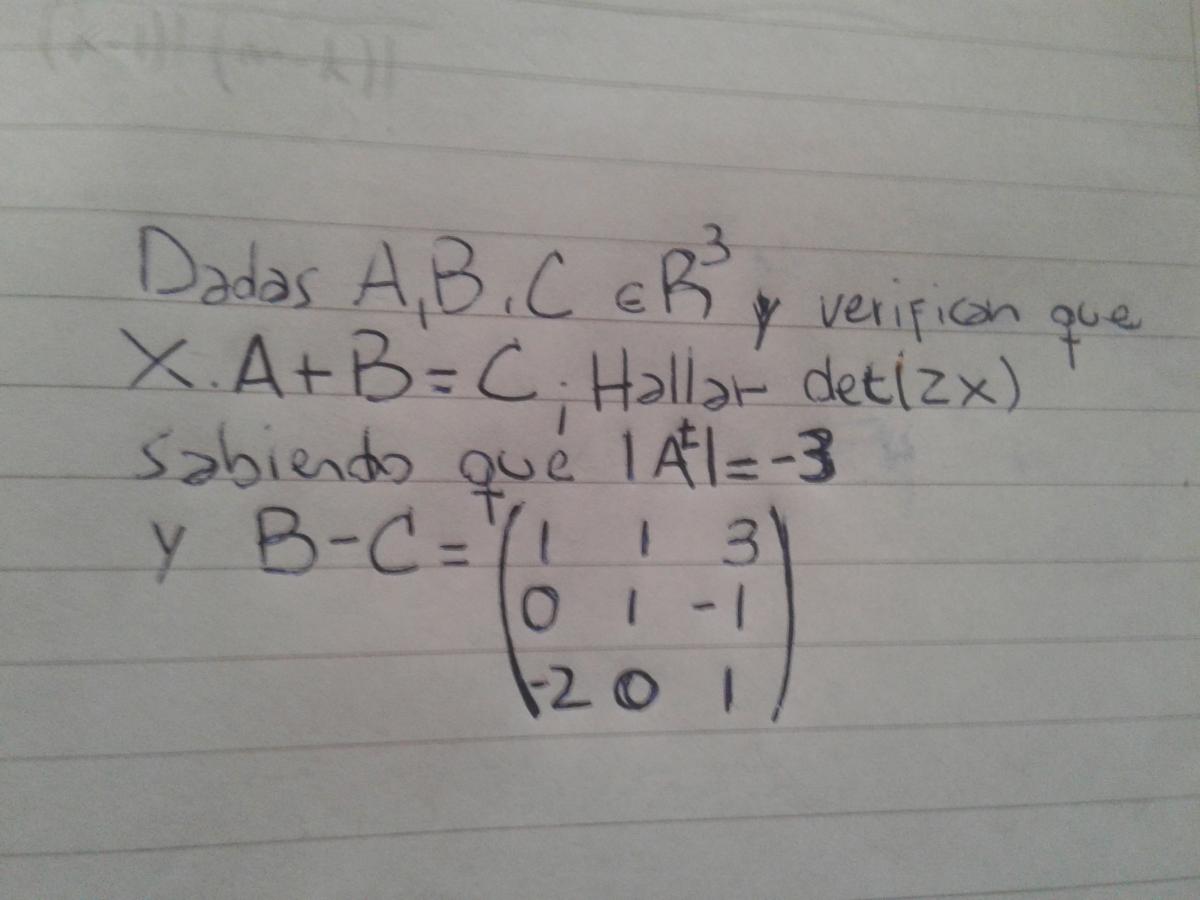 Dadas A, B, C ∈ R³ y verifican que
X.A+B=C; Hallar det(2x)
sabiendo que |Aᵗ|=-3
y B-C= (1 1 3
0 1 -1
-2 0 1)